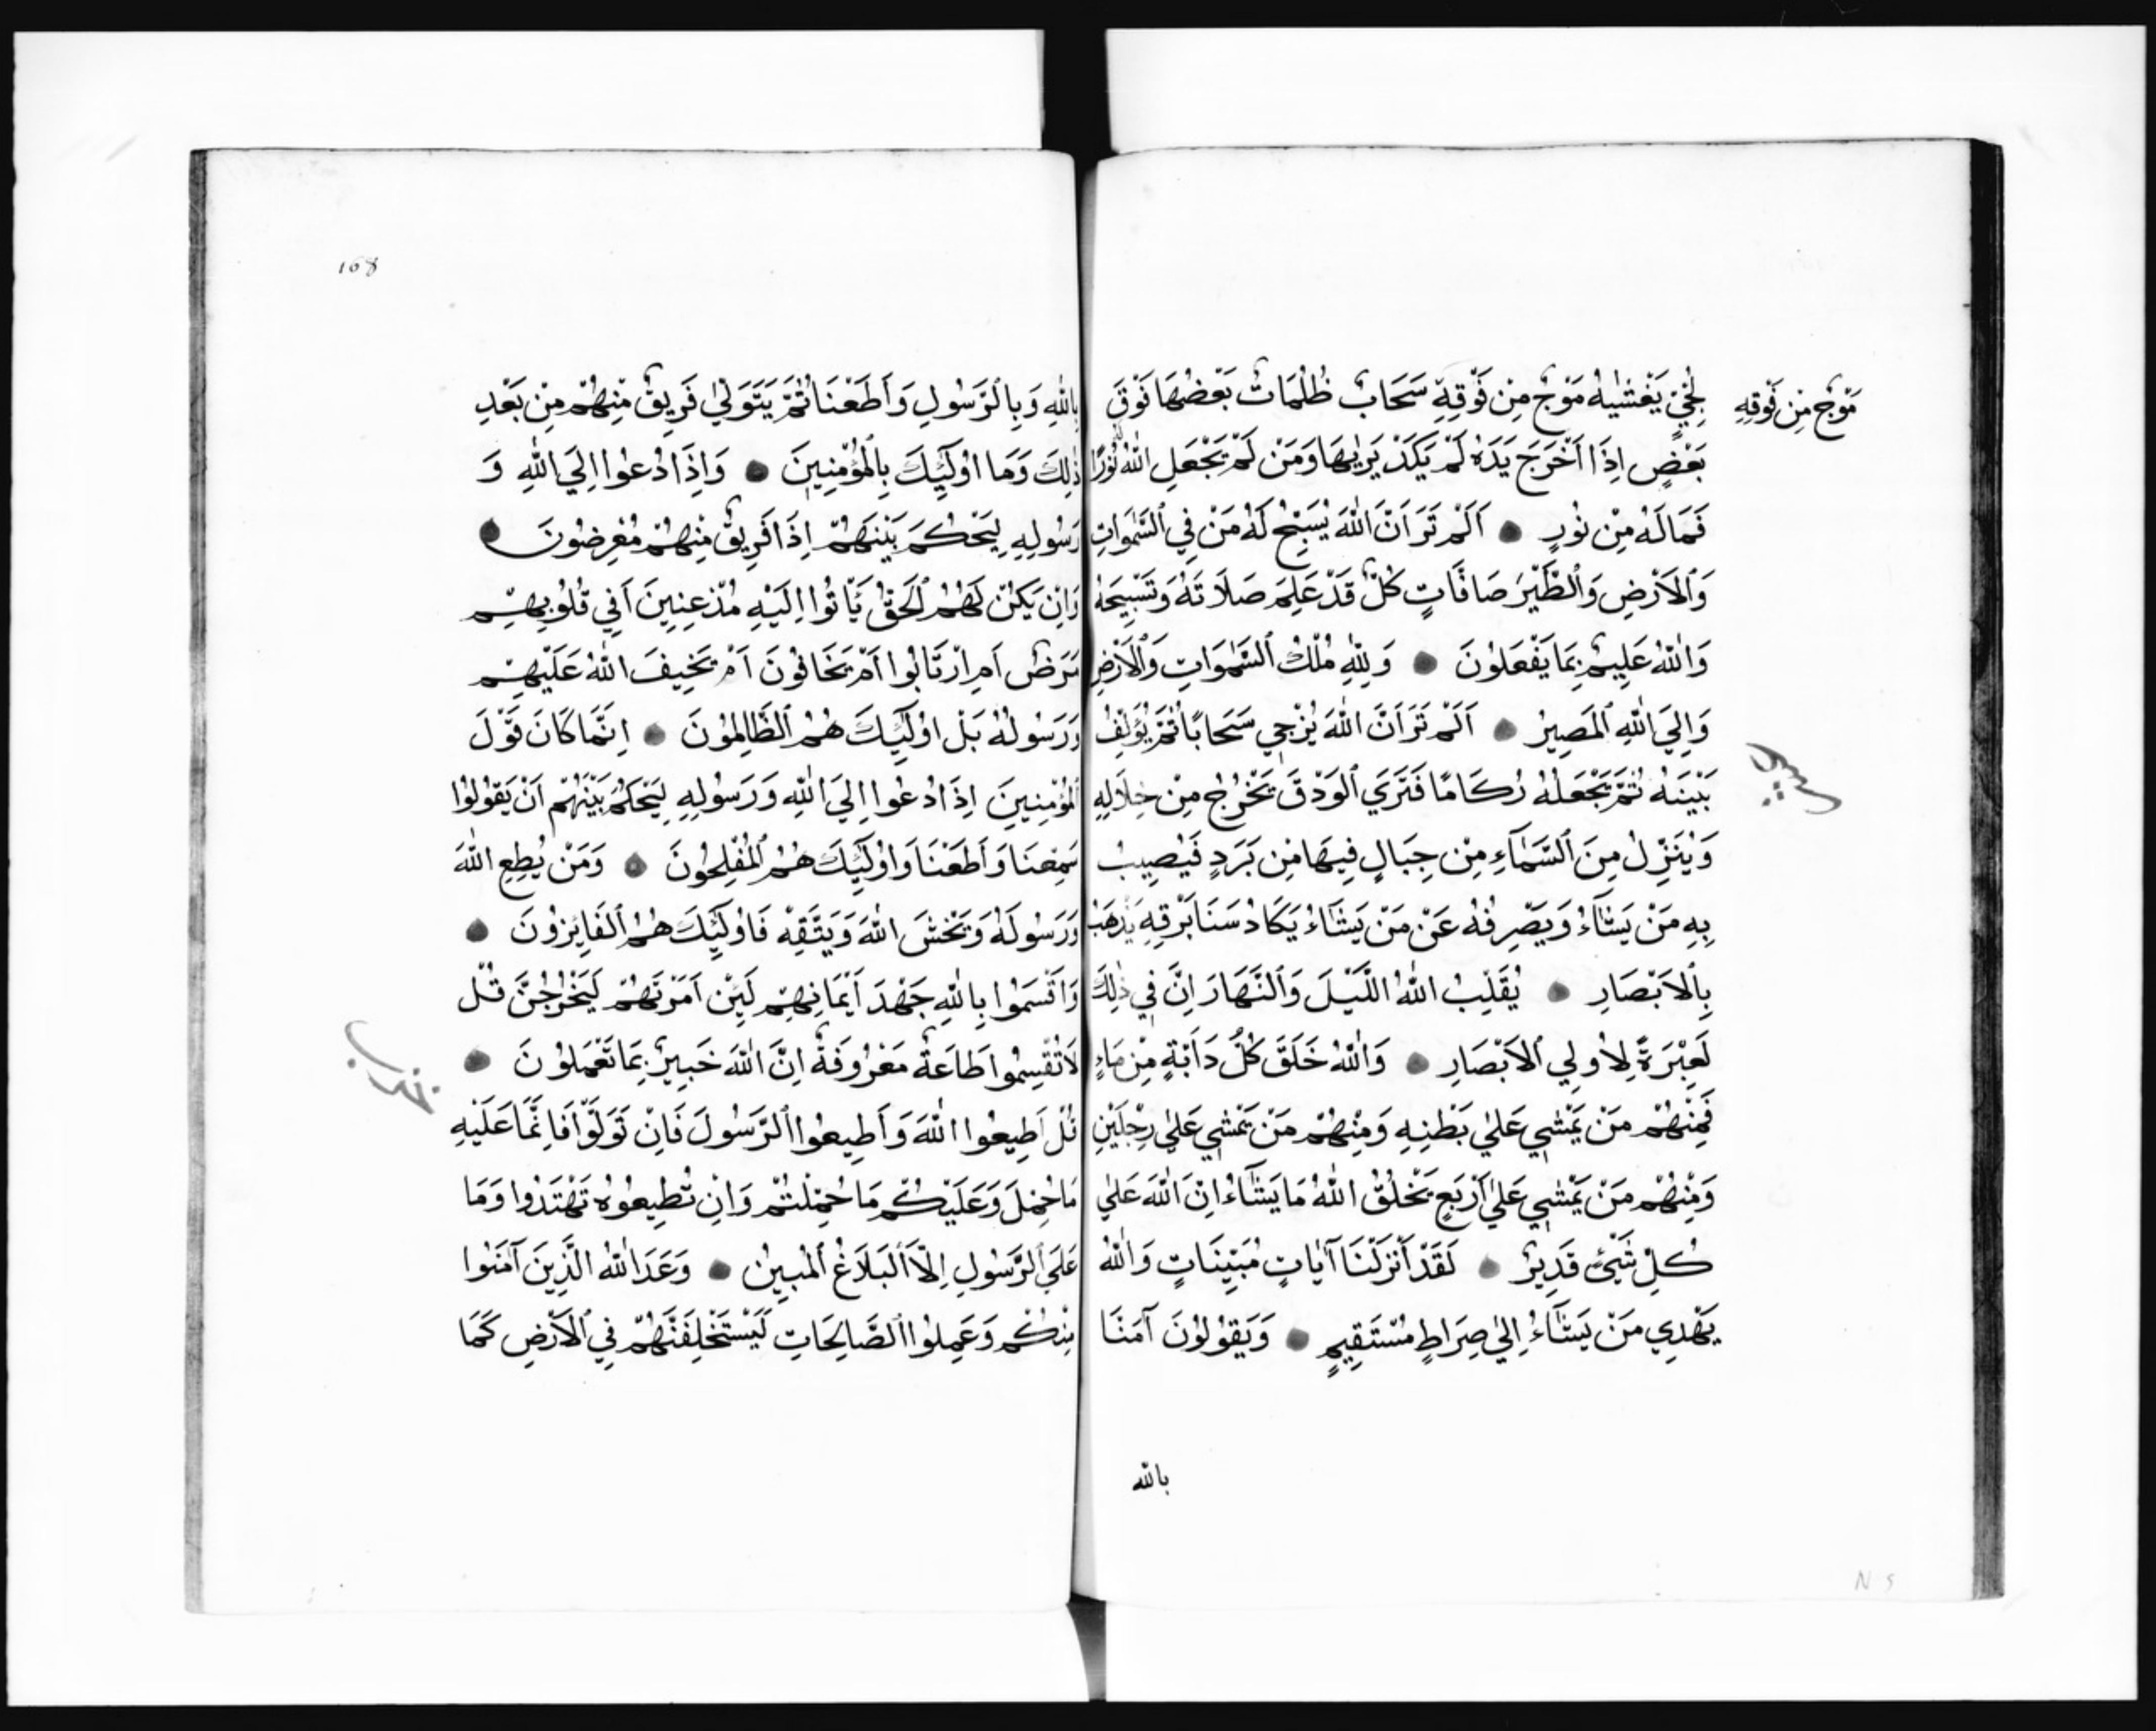 مَوْجٌ مِنْ فَوْقِهِ
لُجِّيٍّ يَغْشٰيهُ مَوْجٌ مِنْ فَوْقِهِ سَحَابٌ ظُلُمَاتٌ بَعْضُهَا فَوْقَ
بَعْضٍ اِذَا اَخْرَجَ يَدَهُ لَمْ يَكَدْ يَرٰيهَا وَمَنْ لَمْ يَجْعَلِ اللّٰهُ لَهُ نُورًا
فَمَا لَهُ مِنْ نُورٍ ● اَلَمْ تَرَ اَنَّ اللّٰهَ يُسَبِّحُ لَهُ مَنْ فِي السَّمٰوَاتِ
وَالْاَرْضِ وَالطَّيْرُ صَافَّاتٍ كُلٌّ قَدْ عَلِمَ صَلَاتَهُ وَتَسْبِيحَهُ
وَاللّٰهُ عَلِيمٌ بِمَا يَفْعَلُونَ ● وَلِلّٰهِ مُلْكُ السَّمٰوَاتِ وَالْاَرْضِ
وَاِلَي اللّٰهِ الْمَصِيرُ ● اَلَمْ تَرَ اَنَّ اللّٰهَ يُزْجِي سَحَابًا ثُمَّ يُؤَلِّفُ
بَيْنَهُ ثُمَّ يَجْعَلُهُ رُكَامًا فَتَرَي الْوَدْقَ يَخْرُجُ مِنْ خِلَالِهِ
وَيُنَزِّلُ مِنَ السَّمَآءِ مِنْ جِبَالٍ فِيهَا مِنْ بَرَدٍ فَيُصِيبُ
بِهِ مَنْ يَشَآءُ وَيَصْرِفُهُ عَنْ مَنْ يَشَاءُ يَكَادُ سَنَا بَرْقِهِ يَذْهَبُ
بِالْاَبْصَارِ ● يُقَلِّبُ اللّٰهُ اللَّيْلَ وَالنَّهَارَ اِنَّ فِي ذٰلِكَ
لَعِبْرَةً لِاُولِي الْاَبْصَارِ ● وَاللّٰهُ خَلَقَ كُلَّ دَابَّةٍ مِنْ مَاءٍ
فَمِنْهُمْ مَنْ يَمْشِي عَلٰي بَطْنِهِ وَمِنْهُمْ مَنْ يَمْشِي عَلٰي رِجْلَيْنِ
وَمِنْهُمْ مَنْ يَمْشِي عَلٰي اَرْبَعٍ يَخْلُقُ اللّٰهُ مَا يَشَآءُ اِنَّ اللّٰهَ عَلٰي
كُلِّ شَيْئٍ قَدِيرٌ ● لَقَدْ اَنْزَلْنَا آيَاتٍ مُبَيِّنَاتٍ وَاللّٰهُ
يَهْدِي مَنْ يَشَآءُ اِلٰي صِرَاطٍ مُسْتَقِيمٍ ● وَيَقُولُونَ آمَنَّا
بالله
168
بِاللّٰهِ وَبِالرَّسُولِ وَاَطَعْنَا ثُمَّ يَتَوَلّٰي فَرِيقٌ مِنْهُمْ مِنْ بَعْدِ
ذٰلِكَ وَمَا اُولٰٓئِكَ بِالْمُؤْمِنِينَ ● وَاِذَا دُعُوا اِلَي اللّٰهِ وَ
رَسُولِهِ لِيَحْكُمَ بَيْنَهُمْ اِذَا فَرِيقٌ مِنْهُمْ مُعْرِضُونَ ●
وَاِنْ يَكُنْ لَهُمُ الْحَقُّ يَأْتُوا اِلَيْهِ مُذْعِنِينَ اَفِي قُلُوبِهِمْ
مَرَضٌ اَمِ ارْتَابُوا اَمْ يَخَافُونَ اَمْ يَخِيفَ اللّٰهُ عَلَيْهِمْ
وَرَسُولُهُ بَلْ اُولٰٓئِكَ هُمُ الظَّالِمُونَ ● اِنَّمَا كَانَ قَوْلَ
الْمُؤْمِنِينَ اِذَا دُعُوا اِلَي اللّٰهِ وَرَسُولِهِ لِيَحْكُمَ بَيْنَهُمْ اَنْ يَقُولُوا
سَمِعْنَا وَاَطَعْنَا وَاُولٰٓئِكَ هُمُ الْمُفْلِحُونَ ● وَمَنْ يُطِعِ اللّٰهَ
وَرَسُولَهُ وَيَخْشَ اللّٰهَ وَيَتَّقِهْ فَاُولٰٓئِكَ هُمُ الْفَائِزُونَ ●
وَاَقْسَمُوا بِاللّٰهِ جَهْدَ اَيْمَانِهِمْ لَئِنْ اَمَرْتَهُمْ لَيَخْرُجُنَّ قُلْ
لَا تُقْسِمُوا طَاعَةٌ مَعْرُوفَةٌ اِنَّ اللّٰهَ خَبِيرٌ بِمَا تَعْمَلُونَ ●
قُلْ اَطِيعُوا اللّٰهَ وَاَطِيعُوا الرَّسُولَ فَاِنْ تَوَلَّوْا فَاِنَّمَا عَلَيْهِ
مَا حُمِّلَ وَعَلَيْكُمْ مَا حُمِّلْتُمْ وَاِنْ تُطِيعُوهُ تَهْتَدُوا وَمَا
عَلَي الرَّسُولِ اِلَّا الْبَلَاغُ الْمُبِينُ ● وَعَدَ اللّٰهُ الَّذِينَ آمَنُوا
مِنْكُمْ وَعَمِلُوا الصَّالِحَاتِ لَيَسْتَخْلِفَنَّهُمْ فِي الْاَرْضِ كَمَا